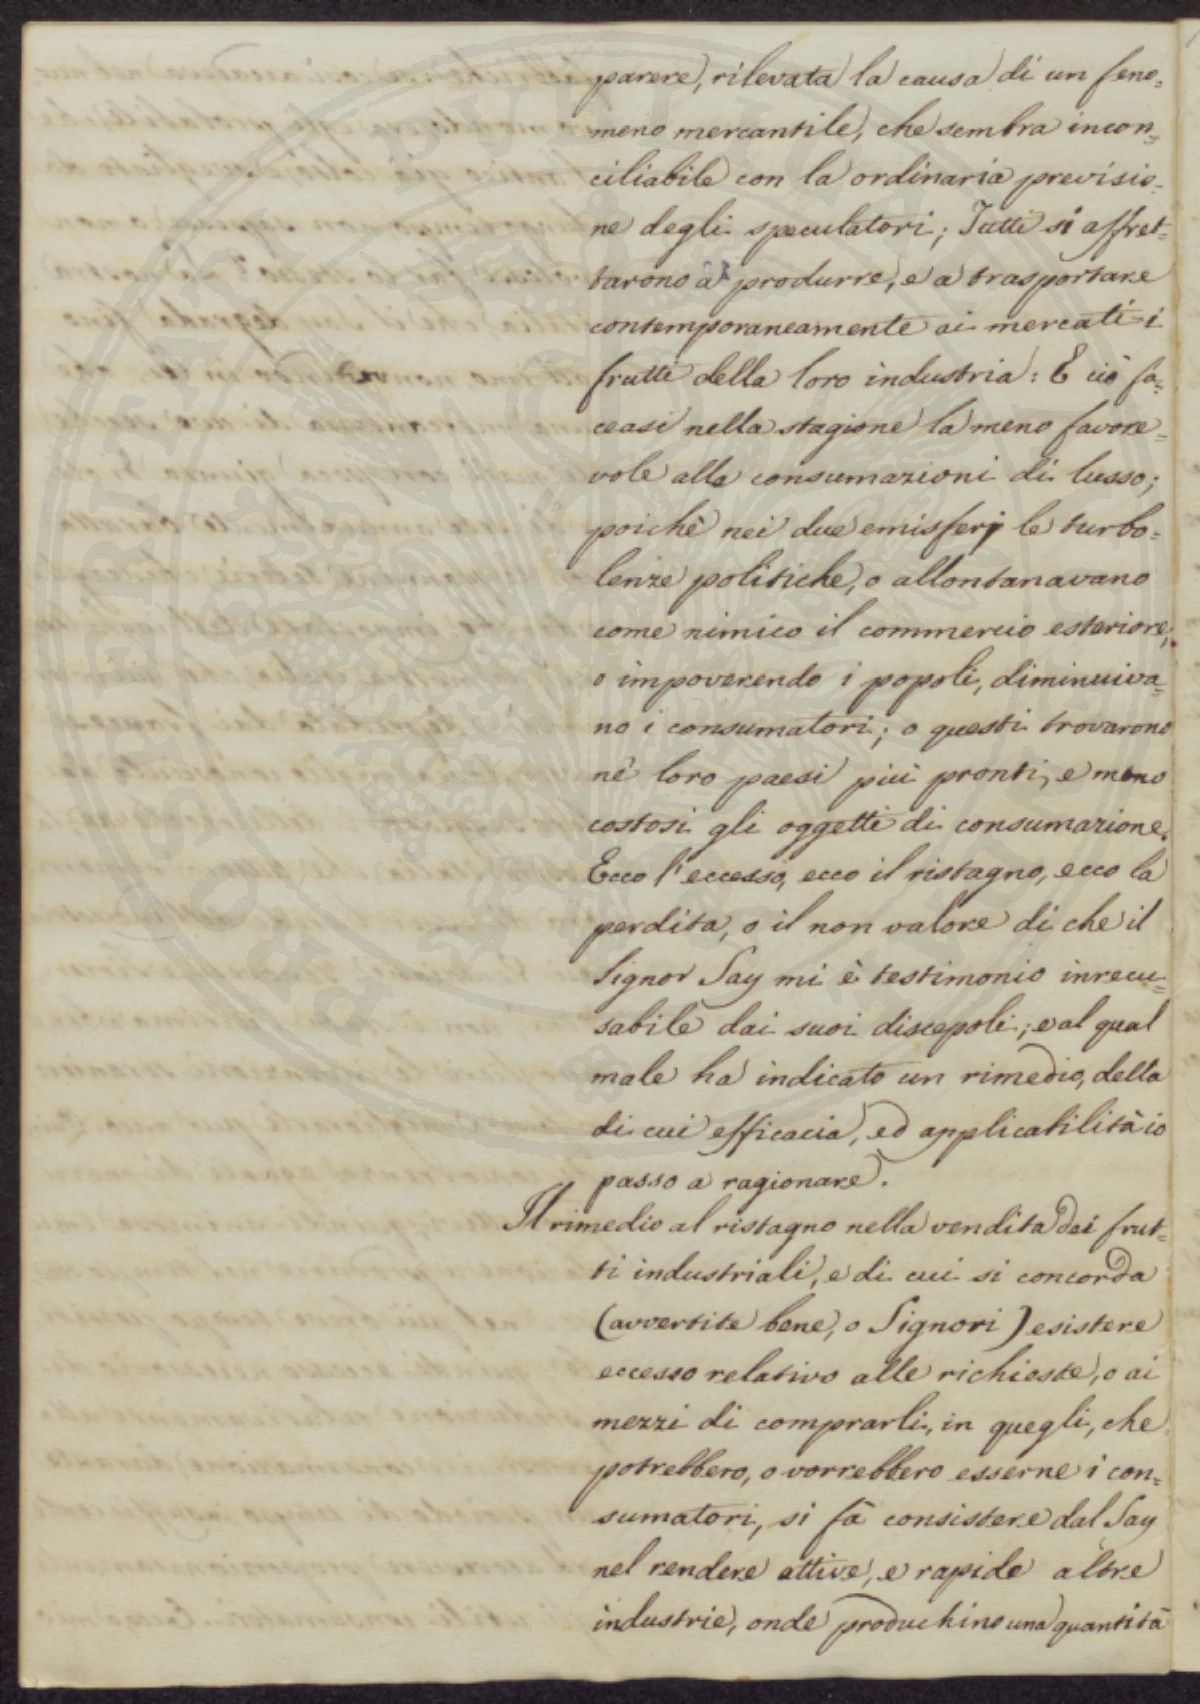 parere, rilevata la causa di un feno=
meno mercantile, che sembra incon=
ciliabile con la ordinaria previsio=
ne degli speculatori; Tutti si affret=
tarono a produrre, e a trasportare
contemporaneamente ai mercati i
frutti della loro industria: E ciò fa=
ceasi nella stagione la meno favore=
vole alle consumazioni di lusso;
poichè nei due emisferj le turbo=
lenze politiche, o allontanavano
come nimico il commercio esteriore,
o impoverendo i popoli, diminuiva=
no i consumatori; o questi trovarono
nè loro paesi più pronti, e meno
costosi gli oggetti di consumazione.
Ecco l'eccesso, ecco il ristagno, ecco la
perdita, o il non valore di che il
Signor Say mi è testimonio inrecu=
sabile dai suoi discepoli; e al qual
male ha indicato un rimedio, della
di cui efficacia, ed applicabilità io
passo a ragionare.
Il rimedio al ristagno nella vendita dei frut=
ti industriali, e di cui si concorda
(avvertite bene, o Signori) esistere
eccesso relativo alle richieste, o ai
mezzi di comprarli, in quegli, che
potrebbero, o vorrebbero esserne i con=
sumatori, si fà consistere dal Say
nel rendere attive, e rapide altre
industrie, onde produchino una quantità